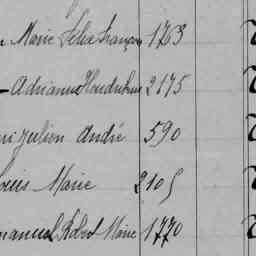 Marie Félix François 1763
Adrianus Hendrikus 2175
Julien André 590
Louis Marie 2105
Emmanuel Robert Marie 1770